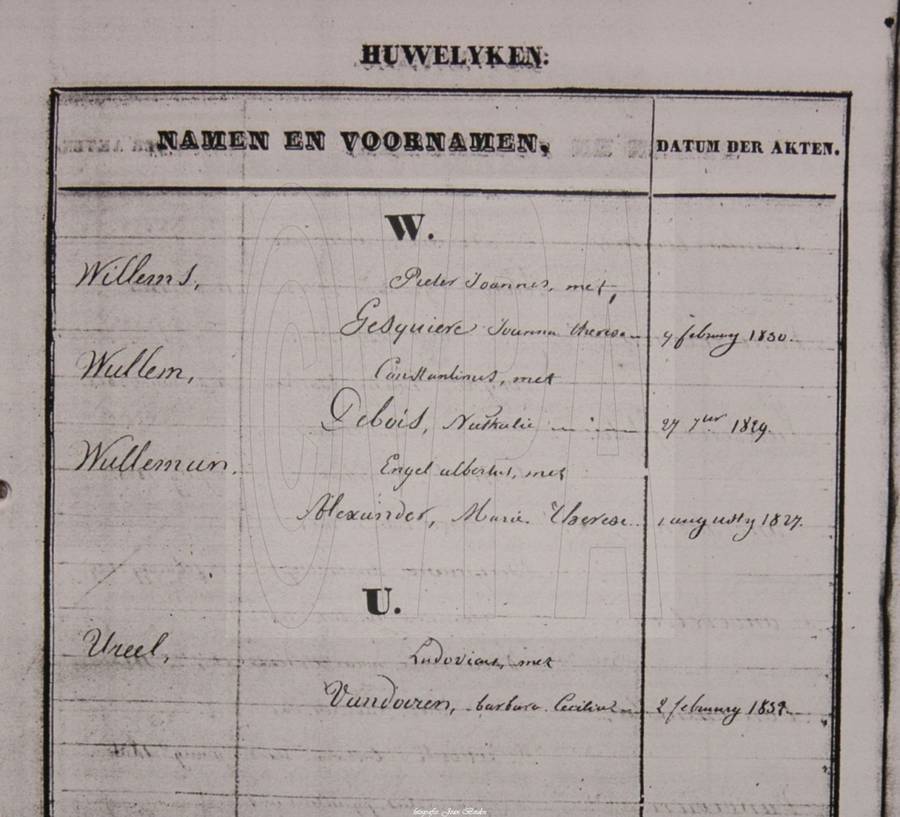 HUWELYKEN:
NAMEN EN VOORNAMEN. DATUM DER AKTEN.
W.
Willems, Pieter Joannes, met,
Gesquiere Joanna theresa 9 february 1830.
Wullem, Constantinus, met
Debois, Nathalie 27 7ber 1829.
Wulleman. Engel albertus, met
Alexander, Marie Therese 1 augusty 1827.
U.
Ureel, Ludovicus, met
Vandoren, barbara Cecilia 2 february